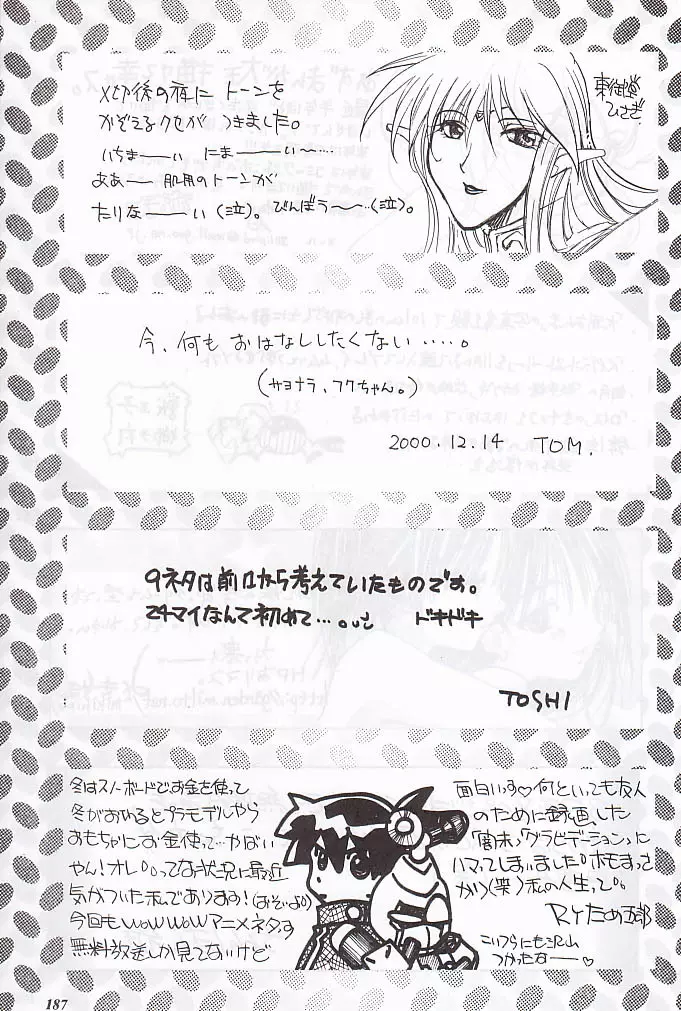 〆切後の夜に トーンを
かぞえるクセが つきました。
いちまーーい にまーーーい〜‥‥
ああー 肌用のトーンが
たりなーーーい(泣)。びんぼう〜〜…(泣)。
東御堂
ひさぎ
今、何も おはなししたくない ‥‥。
(サヨナラ、フクちゃん。)
2000.12.14 TOM.
9ネタは前から考えていたものです。
24マイなんて初めて…。 ドキドキ
TOSHI
冬はスノーボードでお金を使って
冬がおわるとプラモデルやら
おもちゃにお金使って…かばい
やん!オレ。。ってな状況に最近
気がついた私であります!(おそいよ)
今回もWOWWOWアニメネタす
無料放送しか見てないけど
面白いっす♡何といっても友人
のために録画した
「闇末」「グラビテーション」に
ハマってしまいました。ホモまっさ
かり(笑)私の人生って。
RYため五郎
こいつらにも沢山
つかったなー♡
187